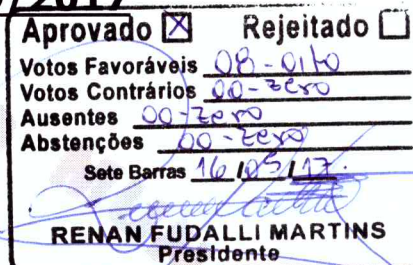 /2017
Aprovado ☒ Rejeitado ☐
Votos Favoráveis 08 - oito
Votos Contrários 00 - zero
Ausentes 00 - zero
Abstenções 00 - zero
Sete Barras 16/05/17.
RENAN FUDALLI MARTINS
Presidente